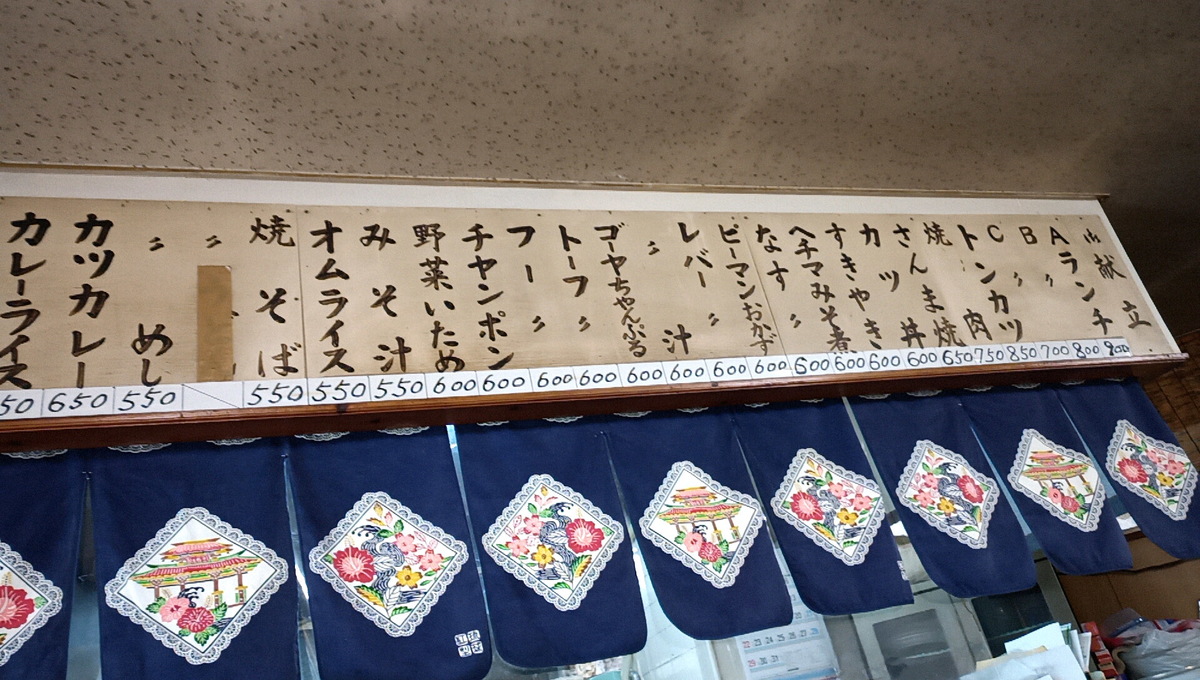 御献立
Aランチ 900
B 〃 800
C 〃 700
トンカツ 850
焼肉 750
さんま焼 650
カツ丼 600
すきやき 600
ヘチマみそ煮 600
なす 〃 600
ピーマンおかず 600
レバー 〃 600
〃 汁 600
ゴーヤちゃんぷる 600
トーフ 〃 600
フー 〃 600
チャンポン 600
野菜いため 600
みそ汁 550
オムライス 550
焼そば 550
〃
〃 めし 550
カツカレー 650
カレーライス 50